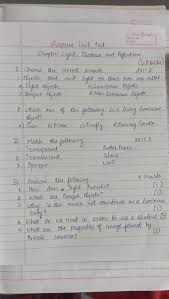 Surprise Unit Test
Chapter: Light, Shadows and Reflections
(10 Marks)
1 Choose the correct answer 2x1=2
1 Objects that emit light on their own are called
a) Light objects b) Luminous objects
c) Opaque objects d) Non luminous objects
2 Which one of the following is a living luminous
object?
a) Sun b) Moon c) Firefly d) Burning Candle
2) Match the following
Transparent Butter paper
Translucent Glass
Opaque Wall
3) Answer the following
1 How does light travel? (1)
2 What are opaque objects? (1)
3 Why is the moon not considered as a luminous
body? (1)
4 What do we need in order to see a shadow (1)
5 What are the properties of image formed by
pinhole camera?